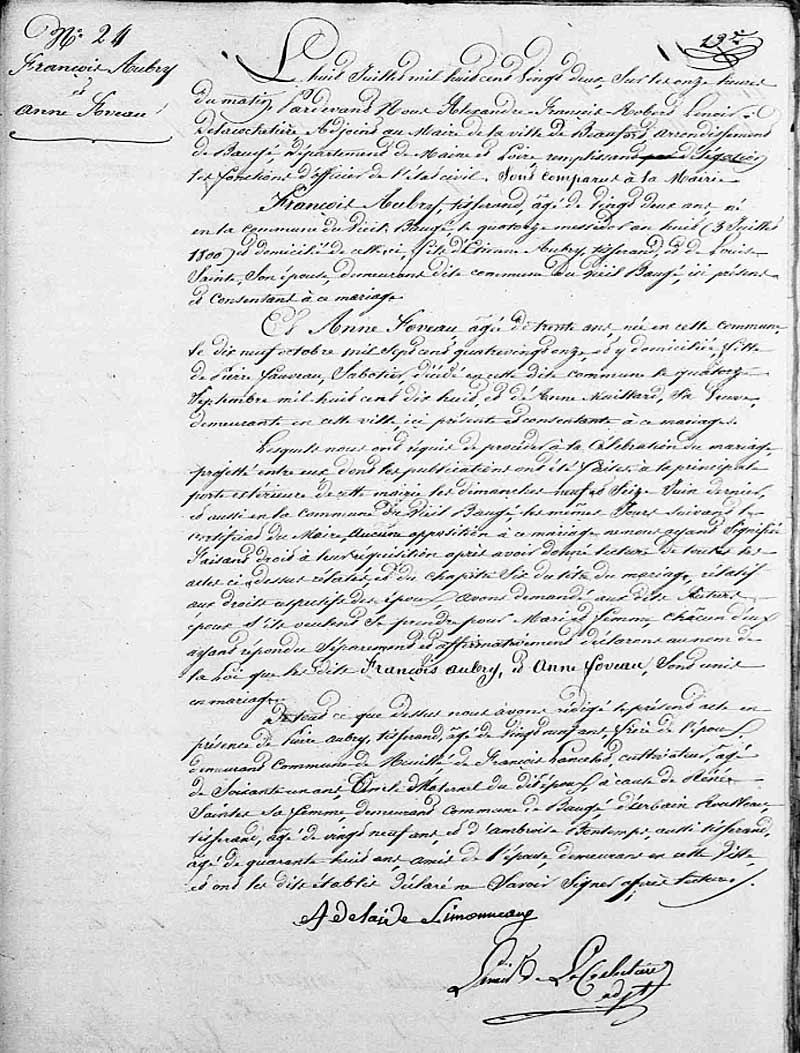 N° 24
13e
François Aubry
et
Anne Foveau
L'huit Juillet mil huit cent vingt deux, Sur les onze heures
du matin, Pardevant Nous Alexandre François Robert Lenoir
Delacochetière Adjoint au Maire de la ville de Beaufort arrondissement
de Baugé, Département de Maine et Loire remplissant par délégation
les fonctions d'officier de l'état civil. Sont comparus à la Mairie
François Aubry, tisserand, âgé de vingt deux ans, né
en la commune du Vieil Baugé, le quatorze messidor an huit (3 Juillet
1800) et domicilié de celle ci, fils d'Etienne Aubry, tisserand, et de Louise
Sainte, Son épouse, demeurant dite commune du Vieil Baugé, ici présent
et consentant à ce mariage
Et Anne Foveau âgée de trente ans, née en cette commune,
le dix neuf octobre mil sept cent quatre vingt onze, et y domiciliée, fille
de Pierre Fauveau, Sabotier, décédé en cette dite commune le quatorze
Septembre mil huit cent dix huit, et d'Anne Maillard, Sa Veuve,
demeurante en cette ville, ici présente et consentante à ce mariage.
Lesquels nous ont requis de procéder à la célébration du mariage
projetté entre eux dont les publications ont été faites à la principale
porte extérieure de cette mairie les dimanches neuf et Seize Juin dernier,
et aussi en la commune du Vieil Baugé, les mêmes Jours suivant le
certificat du Maire, aucune opposition à ce mariage ne nous ayant Signifiée
Faisant droit à leur réquisition après avoir donné lecture de toutes les
actes ci-dessus relatés, et du chapitre Six du titre du mariage, rélatif
aux droits respectifs des époux avons demandé aux dits future
époux s'ils veulent Se prendre pour Mari et femme, chacun d'eux
ayant répondu Séparement et affirmativement déclarons au nom de
la Loi que les dits François Aubry, et Anne Foveau, Sont unis
en mariage.
De tout ce que dessus nous avons rédigé le présent acte en
présence de Pierre Aubry, tisserand, âgé de vingt neuf ans frère de l'époux
demeurant Commune de de François Lancelot, cultivateur, âgé
de Soixante un ans, Oncle Maternel du dit époux, à cause de Rénée
Saintes Sa femme, demeurant Commune de Baugé, d'Urbain Rousseau
tisserand, âgé de vingt neuf ans, et d'ambroise Bontemps, aussi tisserand,
âgé de quarante huit ans, amis de l'épouse, demeurant en cette Ville,
et ont les dits établis déclaré ne Savoir Signer après lecture.
Adelaïde Limonneau
Lenoir de La Cochetière
adjt